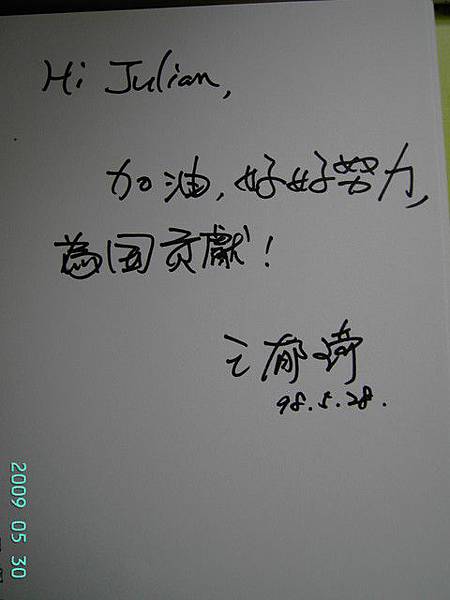 Hi Julian,
加油,好好努力,
為国贡獻!
王郁琦
98.5.28.
2009 05 30